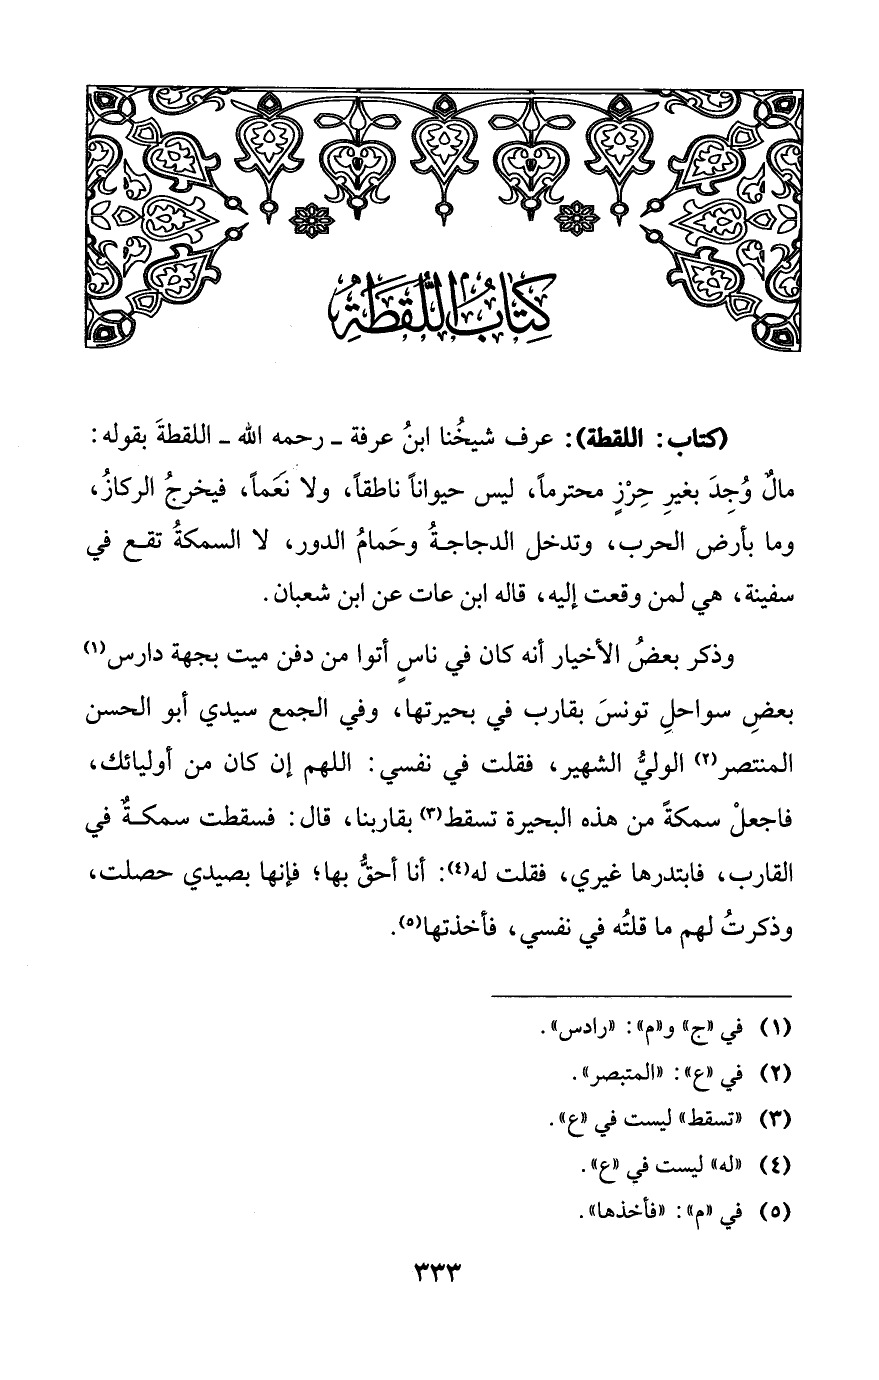 كِتَابُ اللُّقَطَةِ
(كتاب: اللقطة): عرف شيخُنا ابنُ عرفة ـ رحمه الله ـ اللقطةَ بقوله:
مالٌ وُجِدَ بغيرِ حِرْزٍ محترماً، ليس حيواناً ناطقاً، ولا نَعَماً، فيخرجُ الركازُ،
وما بأرض الحرب، وتدخل الدجاجةُ وحَمامُ الدور، لا السمكةُ تقع في
سفينة، هي لمن وقعت إليه، قاله ابن عات عن ابن شعبان.
وذكر بعضُ الأخيار أنه كان في ناسٍ أتوا من دفن ميت بجهة دارس(١)
بعضِ سواحلِ تونسَ بقارب في بحيرتها، وفي الجمع سيدي أبو الحسن
المنتصر(٢) الوليُّ الشهير، فقلت في نفسي: اللهم إن كان من أوليائك،
فاجعلْ سمكةً من هذه البحيرة تسقط(٣) بقاربنا، قال: فسقطت سمكةٌ في
القارب، فابتدرها غيري، فقلت له(٤): أنا أحقُّ بها؛ فإنها بصيدي حصلت،
وذكرتُ لهم ما قلتُه في نفسي، فأخذتها(٥).
(١) في «ج» و«م»: «رادس».
(٢) في «ع»: «المتبصر».
(٣) «تسقط» ليست في «ع».
(٤) «له» ليست في «ع».
(٥) في «م»: «فأخذها».
٣٣٣